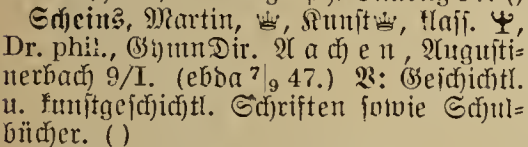 Scheins, Martin, ♕, Kunst♕, klass. 🝳,
Dr. phil., GymnDir. Aachen, Augusti=
nerbach 9/I. (ebda 7/9 47.) V: Geschichtl.
u. kunstgeschichtl. Schriften sowie Schul=
bücher. ( )